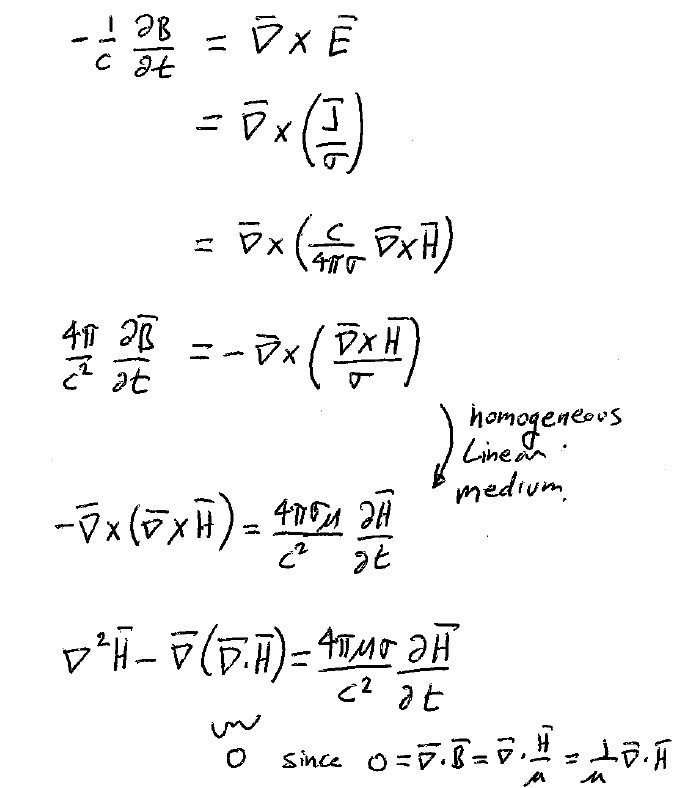 -1/c ∂B/∂t = ∇̄ × Ē
= ∇̄ × (J̄/σ)
= ∇̄ × (c/4πσ ∇̄ × H̄)
4π/c² ∂B̄/∂t = - ∇̄ × (∇̄ × H̄/σ)
homogeneous
Linear
medium.
-∇̄ × (∇̄ × H̄) = 4πσμ/c² ∂H̄/∂t
∇²H̄ - ∇̄(∇̄·H̄) = 4πμσ/c² ∂H̄/∂t
0 since 0 = ∇̄·B̄ = ∇̄·H̄/μ = 1/μ ∇̄·H̄